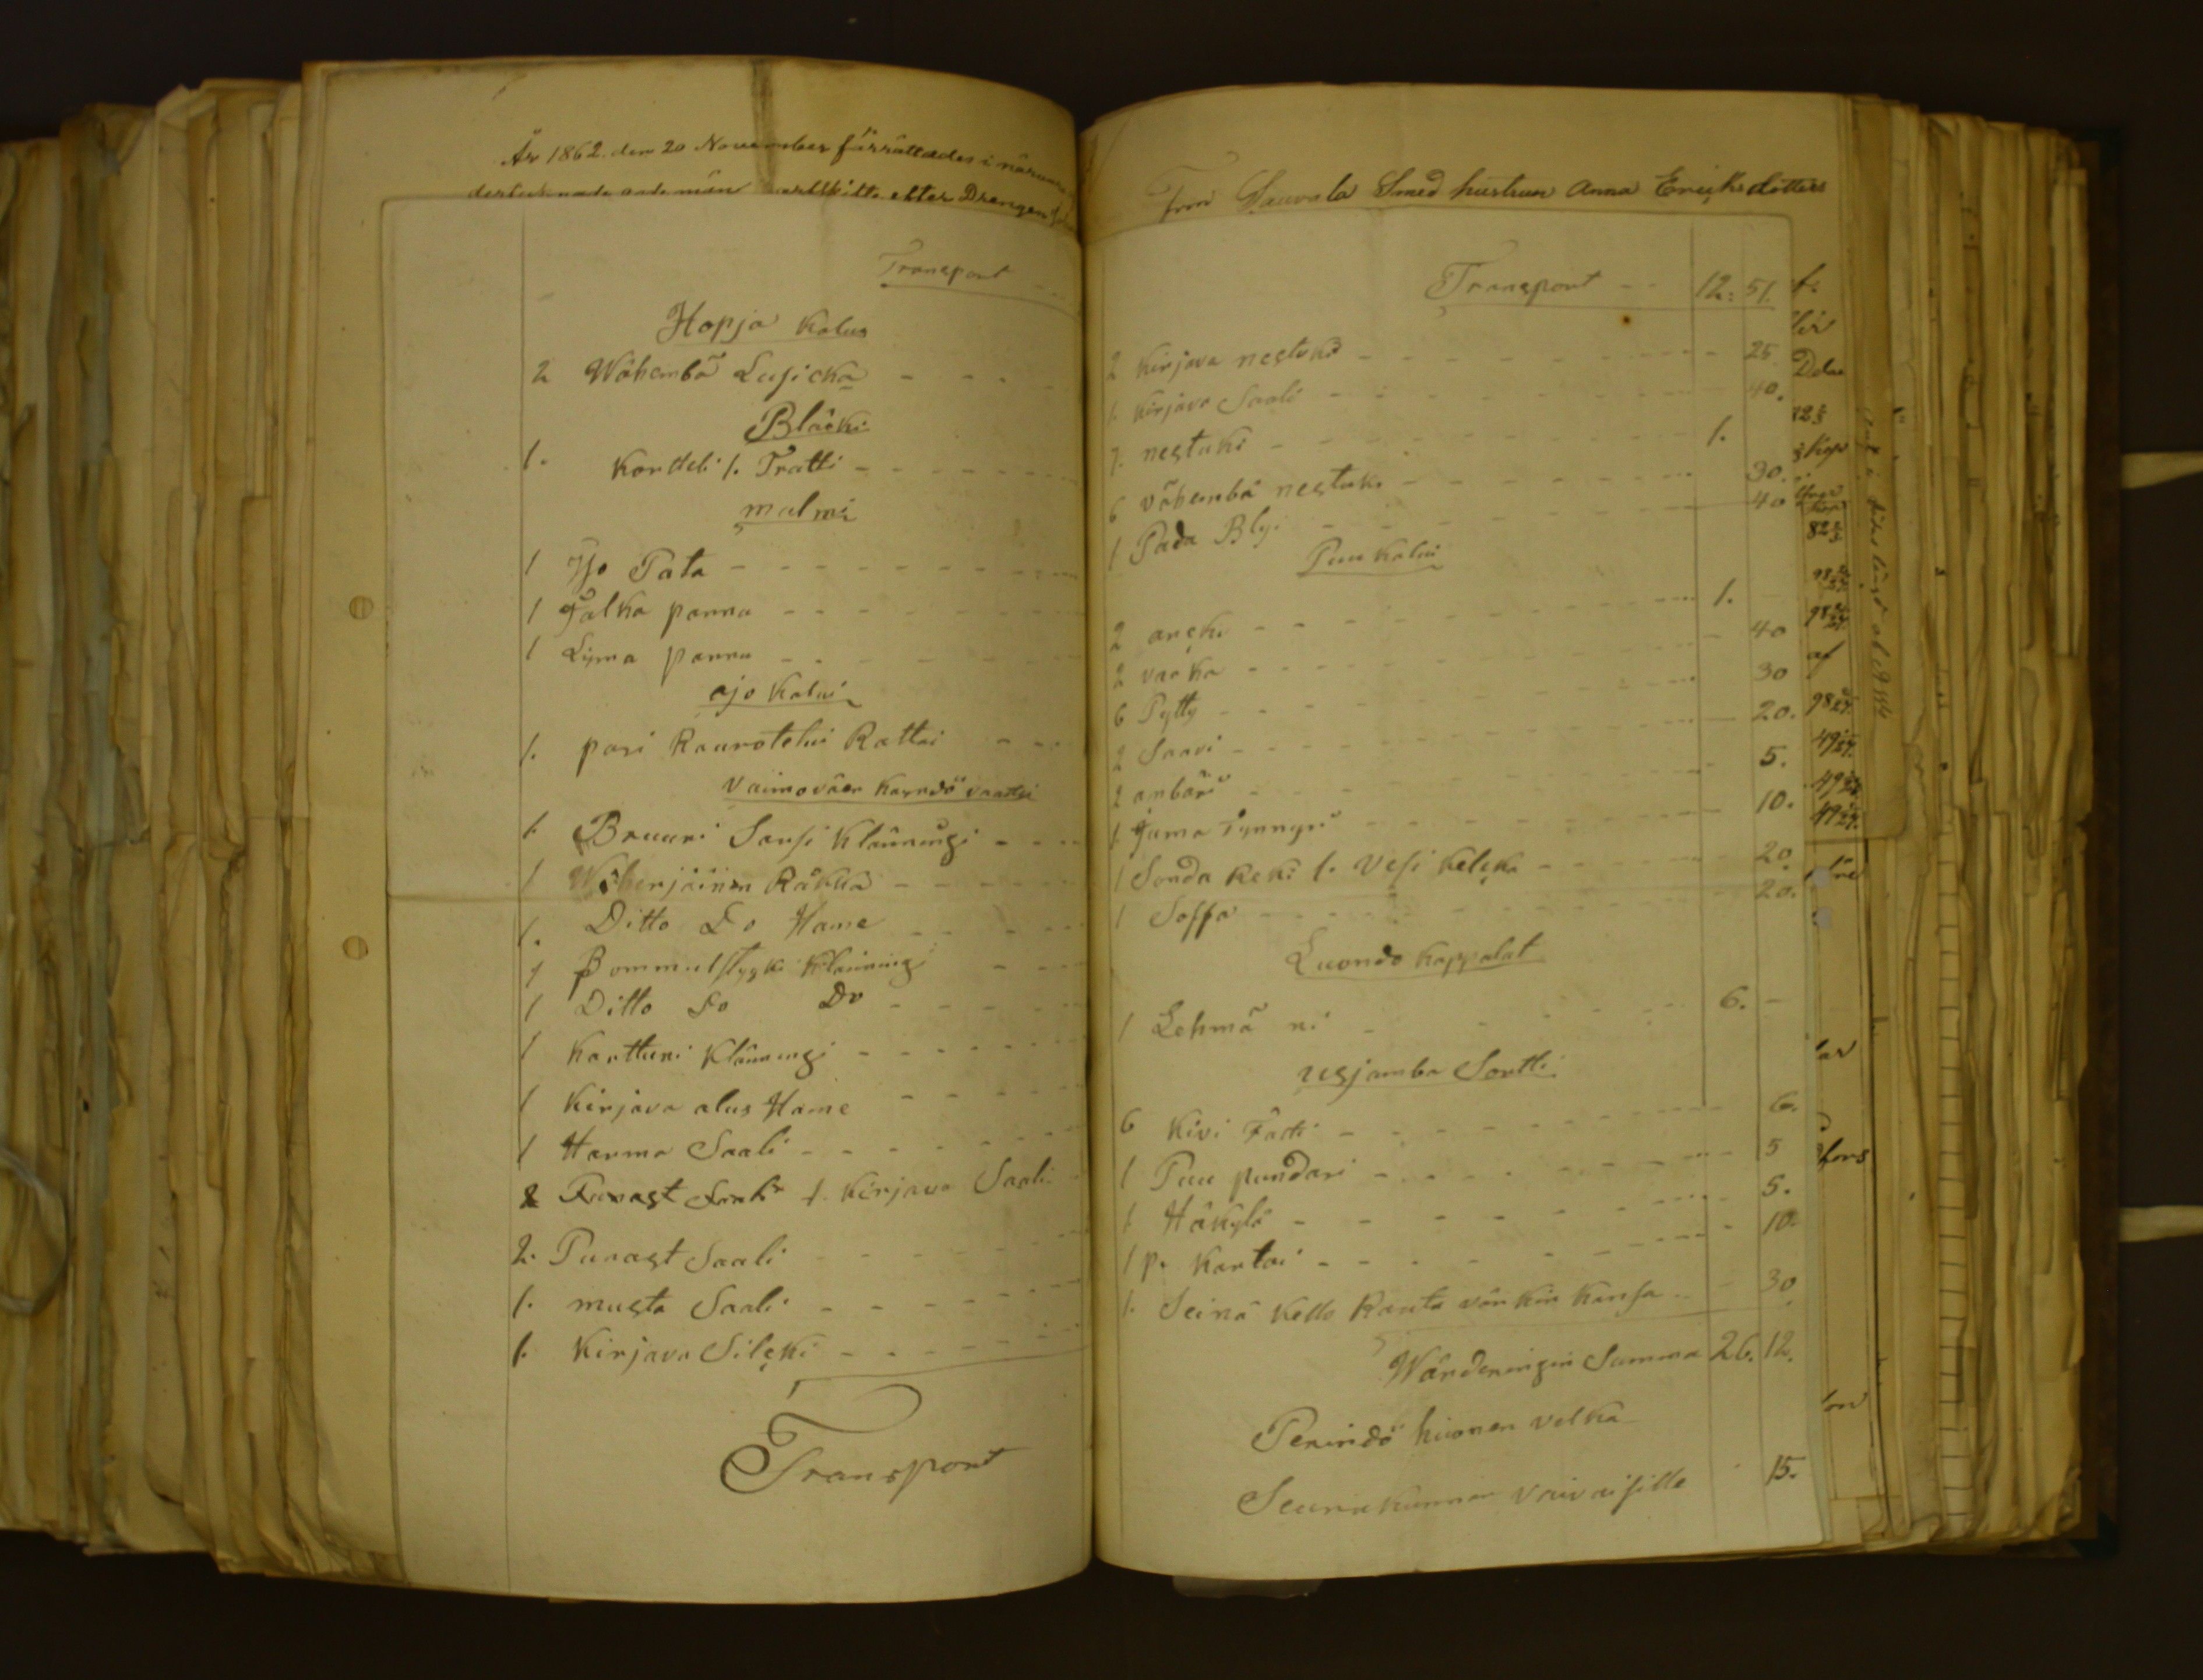 År 1862. den 20 November förrättades i närvaro
Transport
Hopja kalus
2 Wähembä Lusicka
Bläcki
1. kortteli 1. Tratti
malmi
1 Iso Pata
1 Jalka panna
1 Liima panna
ajo kalui
1. pari Raurotelui Rattai
vaimoväen käyndö vaattei
1. Bruuni Sarsi Klänningi
1 Wiherjäinen Räkkä
1. Ditto Do Hame
1 Bommulstygki Klänningi
1 Ditto Do Do
1 karttuni Klänningi
1 kirjava alus Hame
1 Harma Saali
2 Punast Saali 1. kirjava Saali
2. Punast Saali
1. musta Saali
1. kirjava Silcki
Transport
From Sauvala Smed hustrun Anna Ericksdotters
Transport 12: 51.
2 kirjava nestuki 25
1. kirjava Saali 40.
7. nestuki 1.
6 vähembä nestuki 30.
1 Pada Blyi 40
Puu kalui
2 arcku 1.
2 vacka 40
6 Pytty 30
2 Saavi 20.
2 ambäri 5.
1. Juma Tynnyri 10.
1 Sonda keki 1. Vesi kelcka 20
1 Soffa 20.
Luondo kappalat
1 Lehmä ni 6. –
usjamba Sortti
6 kivi Fatti 6.
1 Puu pundari 5
1 Häkylä 5.
1 p. kartai 10.
1. Seinä kello Rauta värkin kansa 30
Wärderingin Summa 26. 12.
Perindö huonen velka
Seurakunnan vaivaisille 15.